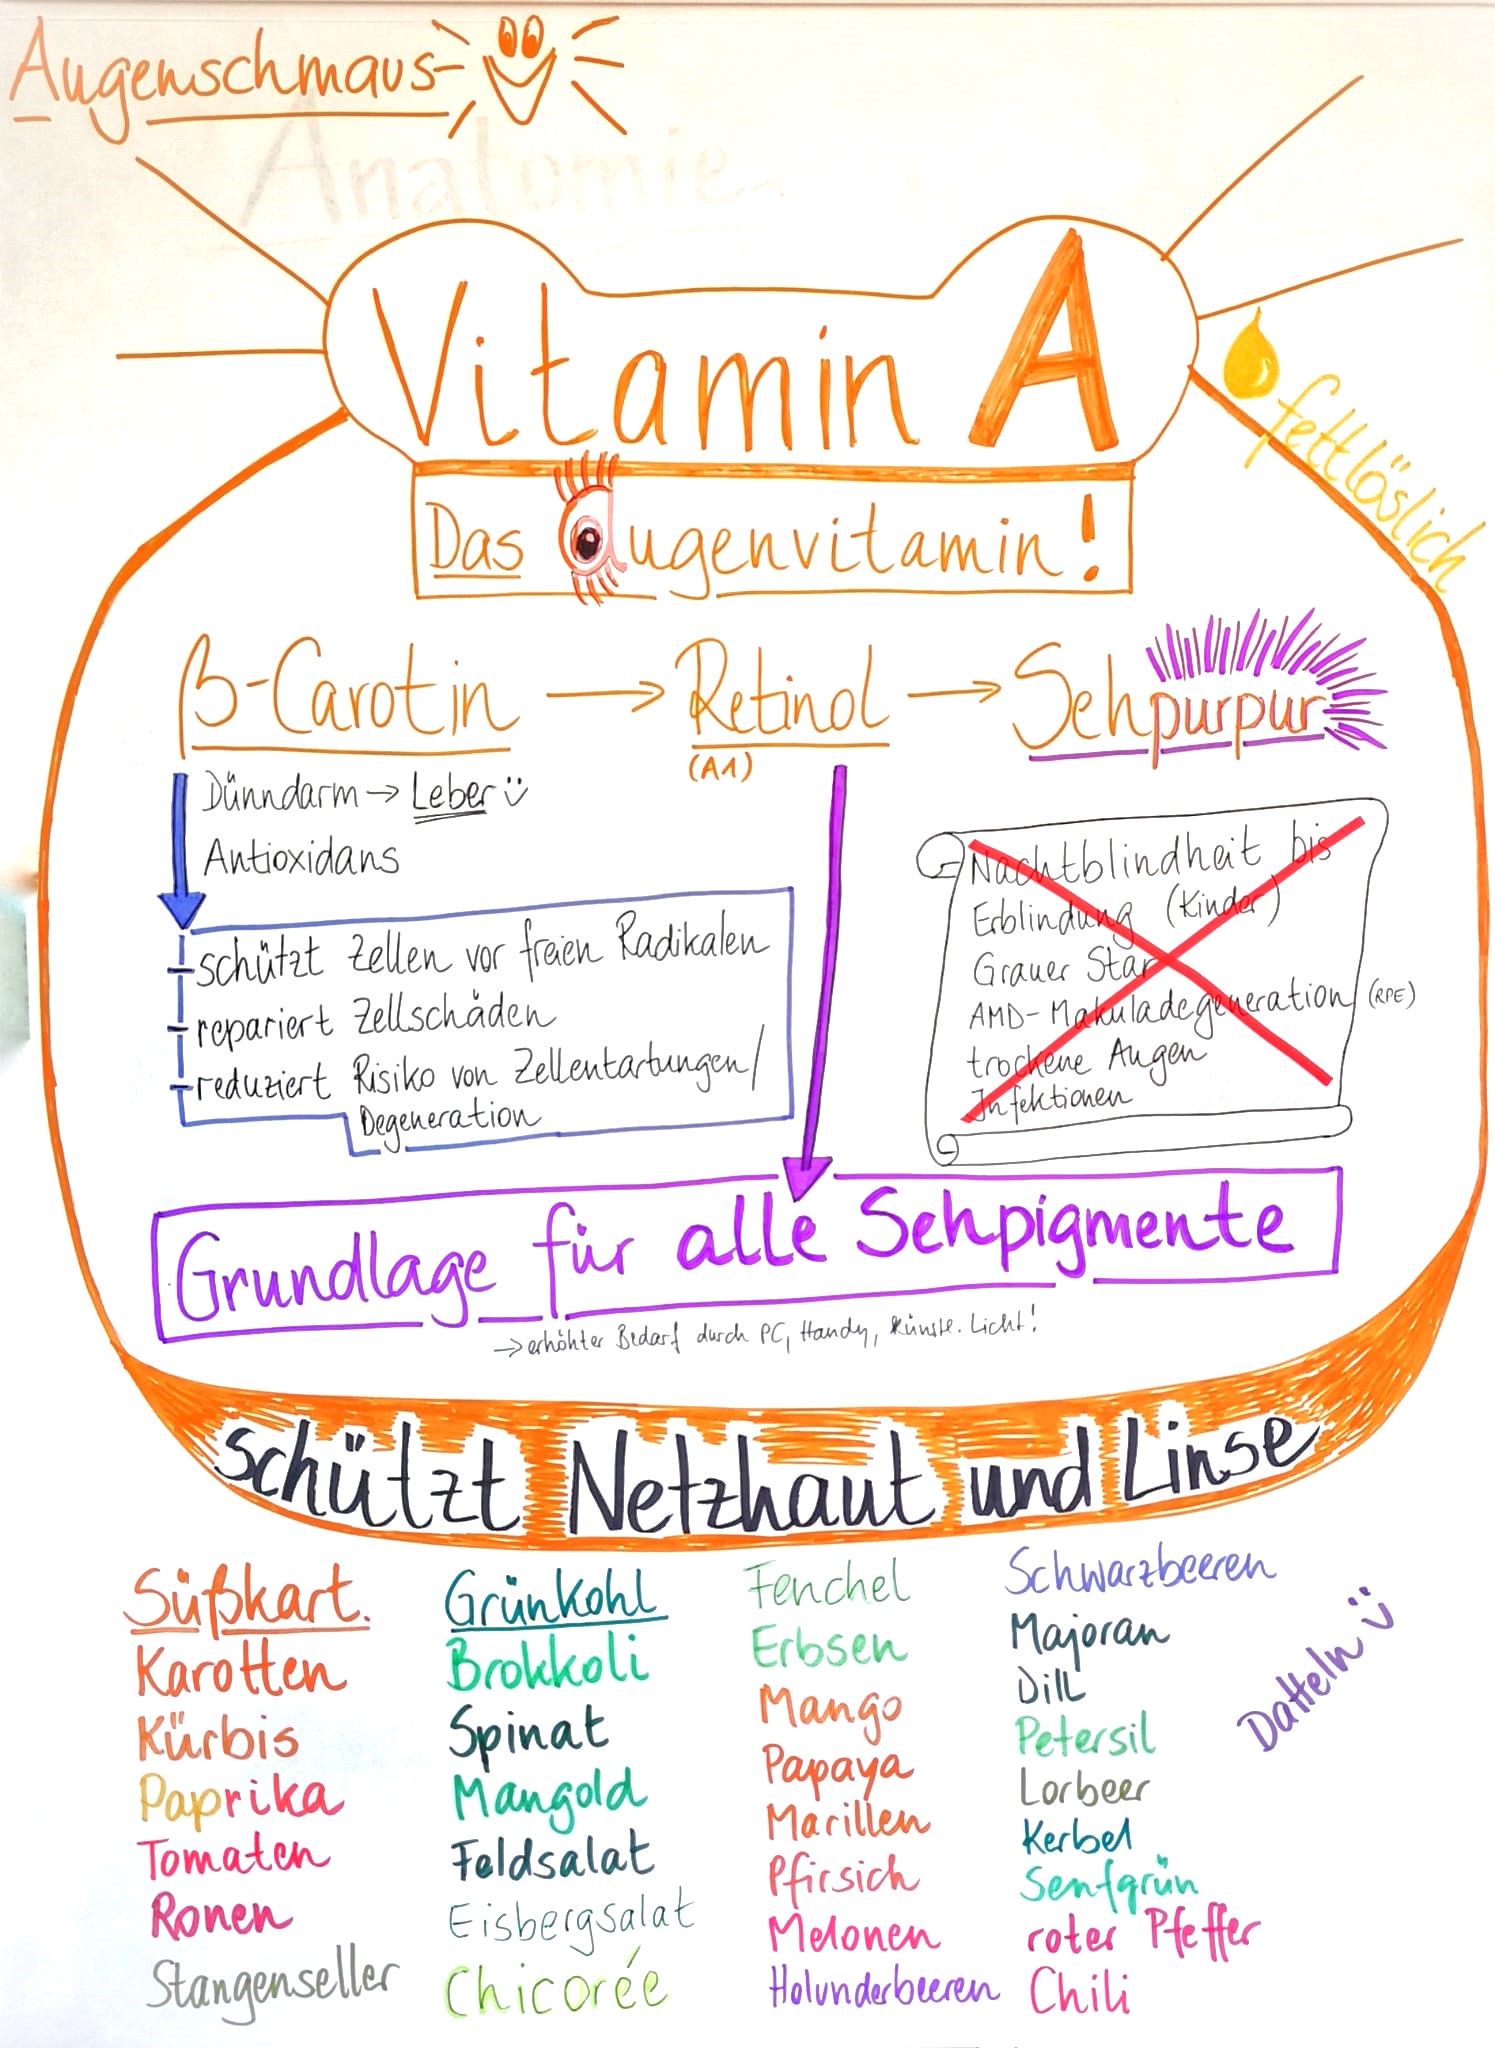 Augenschmaus
Anatomie
Vitamin A
fettlöslich
Das Augenvitamin!
β-Carotin → Retinol → Sehpurpur
(A1)
Dünndarm → Leber
Antioxidans
- schützt Zellen vor freien Radikalen
- repariert Zellschäden
- reduziert Risiko von Zellentartungen/
Degeneration
Nachtblindheit bis
Erblindung (Kinder)
Grauer Star
AMD- Makuladegeneration (RPE)
trockene Augen
Infektionen
Grundlage für alle Sehpigmente
→ erhöhter Bedarf durch PC, Handy, künstl. Licht!
schützt Netzhaut und Linse
Süßkart.
Karotten
Kürbis
Paprika
Tomaten
Ronen
Stangenseller
Grünkohl
Brokkoli
Spinat
Mangold
Feldsalat
Eisbergsalat
Chicorée
Fenchel
Erbsen
Mango
Papaya
Marillen
Pfirsich
Melonen
Holunderbeeren
Schwarzbeeren
Majoran
Dill
Petersil
Lorbeer
Kerbel
Senfgrün
roter Pfeffer
Chili
Datteln